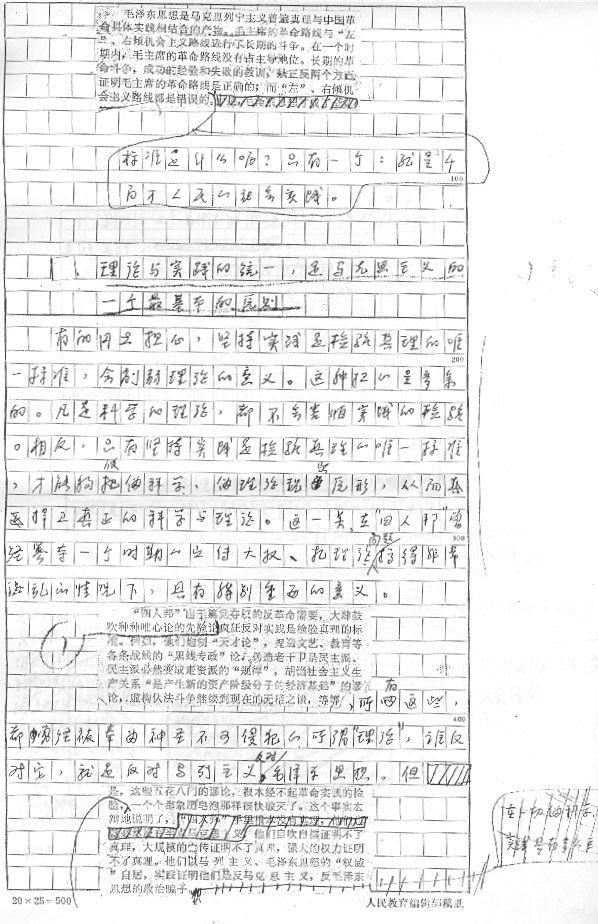 毛泽东思想是马克思列宁主义普遍真理与中国革
命具体实践相结合的产物。毛主席的革命路线与“左
”、右倾机会主义路线进行了长期的斗争。在一个时
期内，毛主席的革命路线没有占主导地位。长期的革
命斗争，成功的经验和失败的教训，从正反两个方面
证明毛主席的革命路线是正确的；而“左”、右倾机
会主义路线都是错误的。
标准是什么呢？只有一个：就是千
100
百万人民的社会实践。
理论与实践的统一，是马克思主义的
一个最基本的原则
有的同志担心，坚持实践是检验真理的唯
200
一标准，会削弱理论的意义。这种担心是多余
的。凡是科学的理论，都不会害怕实践的检验
。相反，只有坚持实践是检验真理的唯一标准
，才能够使伪科学、伪理论现出原形，从而
捍卫真正的科学与理论。这一点，在“四人帮”曾
300
经一个时期的大权、把理论问题搞得非常
混乱的情况下，具有特别重要的意义。
“四人帮”由于篡党夺权的反革命需要，大肆鼓
吹种种唯心论的先验论疯狂反对实践是检验真理的标
准。例如，他们炮制“天才论”，捏造文艺、教育等
各条战线的“黑线专政”论，伪造老干部是民主派、
民主派必然变成走资派的“规律”，胡诌社会主义生
产关系“是产生新的资产阶级分子的经济基础”的谬
论，虚构儒法斗争继续到现在的无稽之谈，等等，所有这些，
400
都曾经被奉为神圣不可侵犯的所谓“理论”，谁反
对它，就是反对马列主义，反对毛泽东思想。但
是，这些五花八门的谬论，根本经不起革命实践的检
验，一个个都象肥皂泡那样很快破灭了。这个事实雄
辩地说明了，他们自吹自擂证明不了
真理，大规模的宣传证明不了真理，强大的权力证明
不了真理。他们以马列主义、毛泽东思想的“权威
”自居，实践证明他们是反马克思主义，反毛泽东
思想的政治骗子。
20×25＝500
人民教育编辑部稿纸